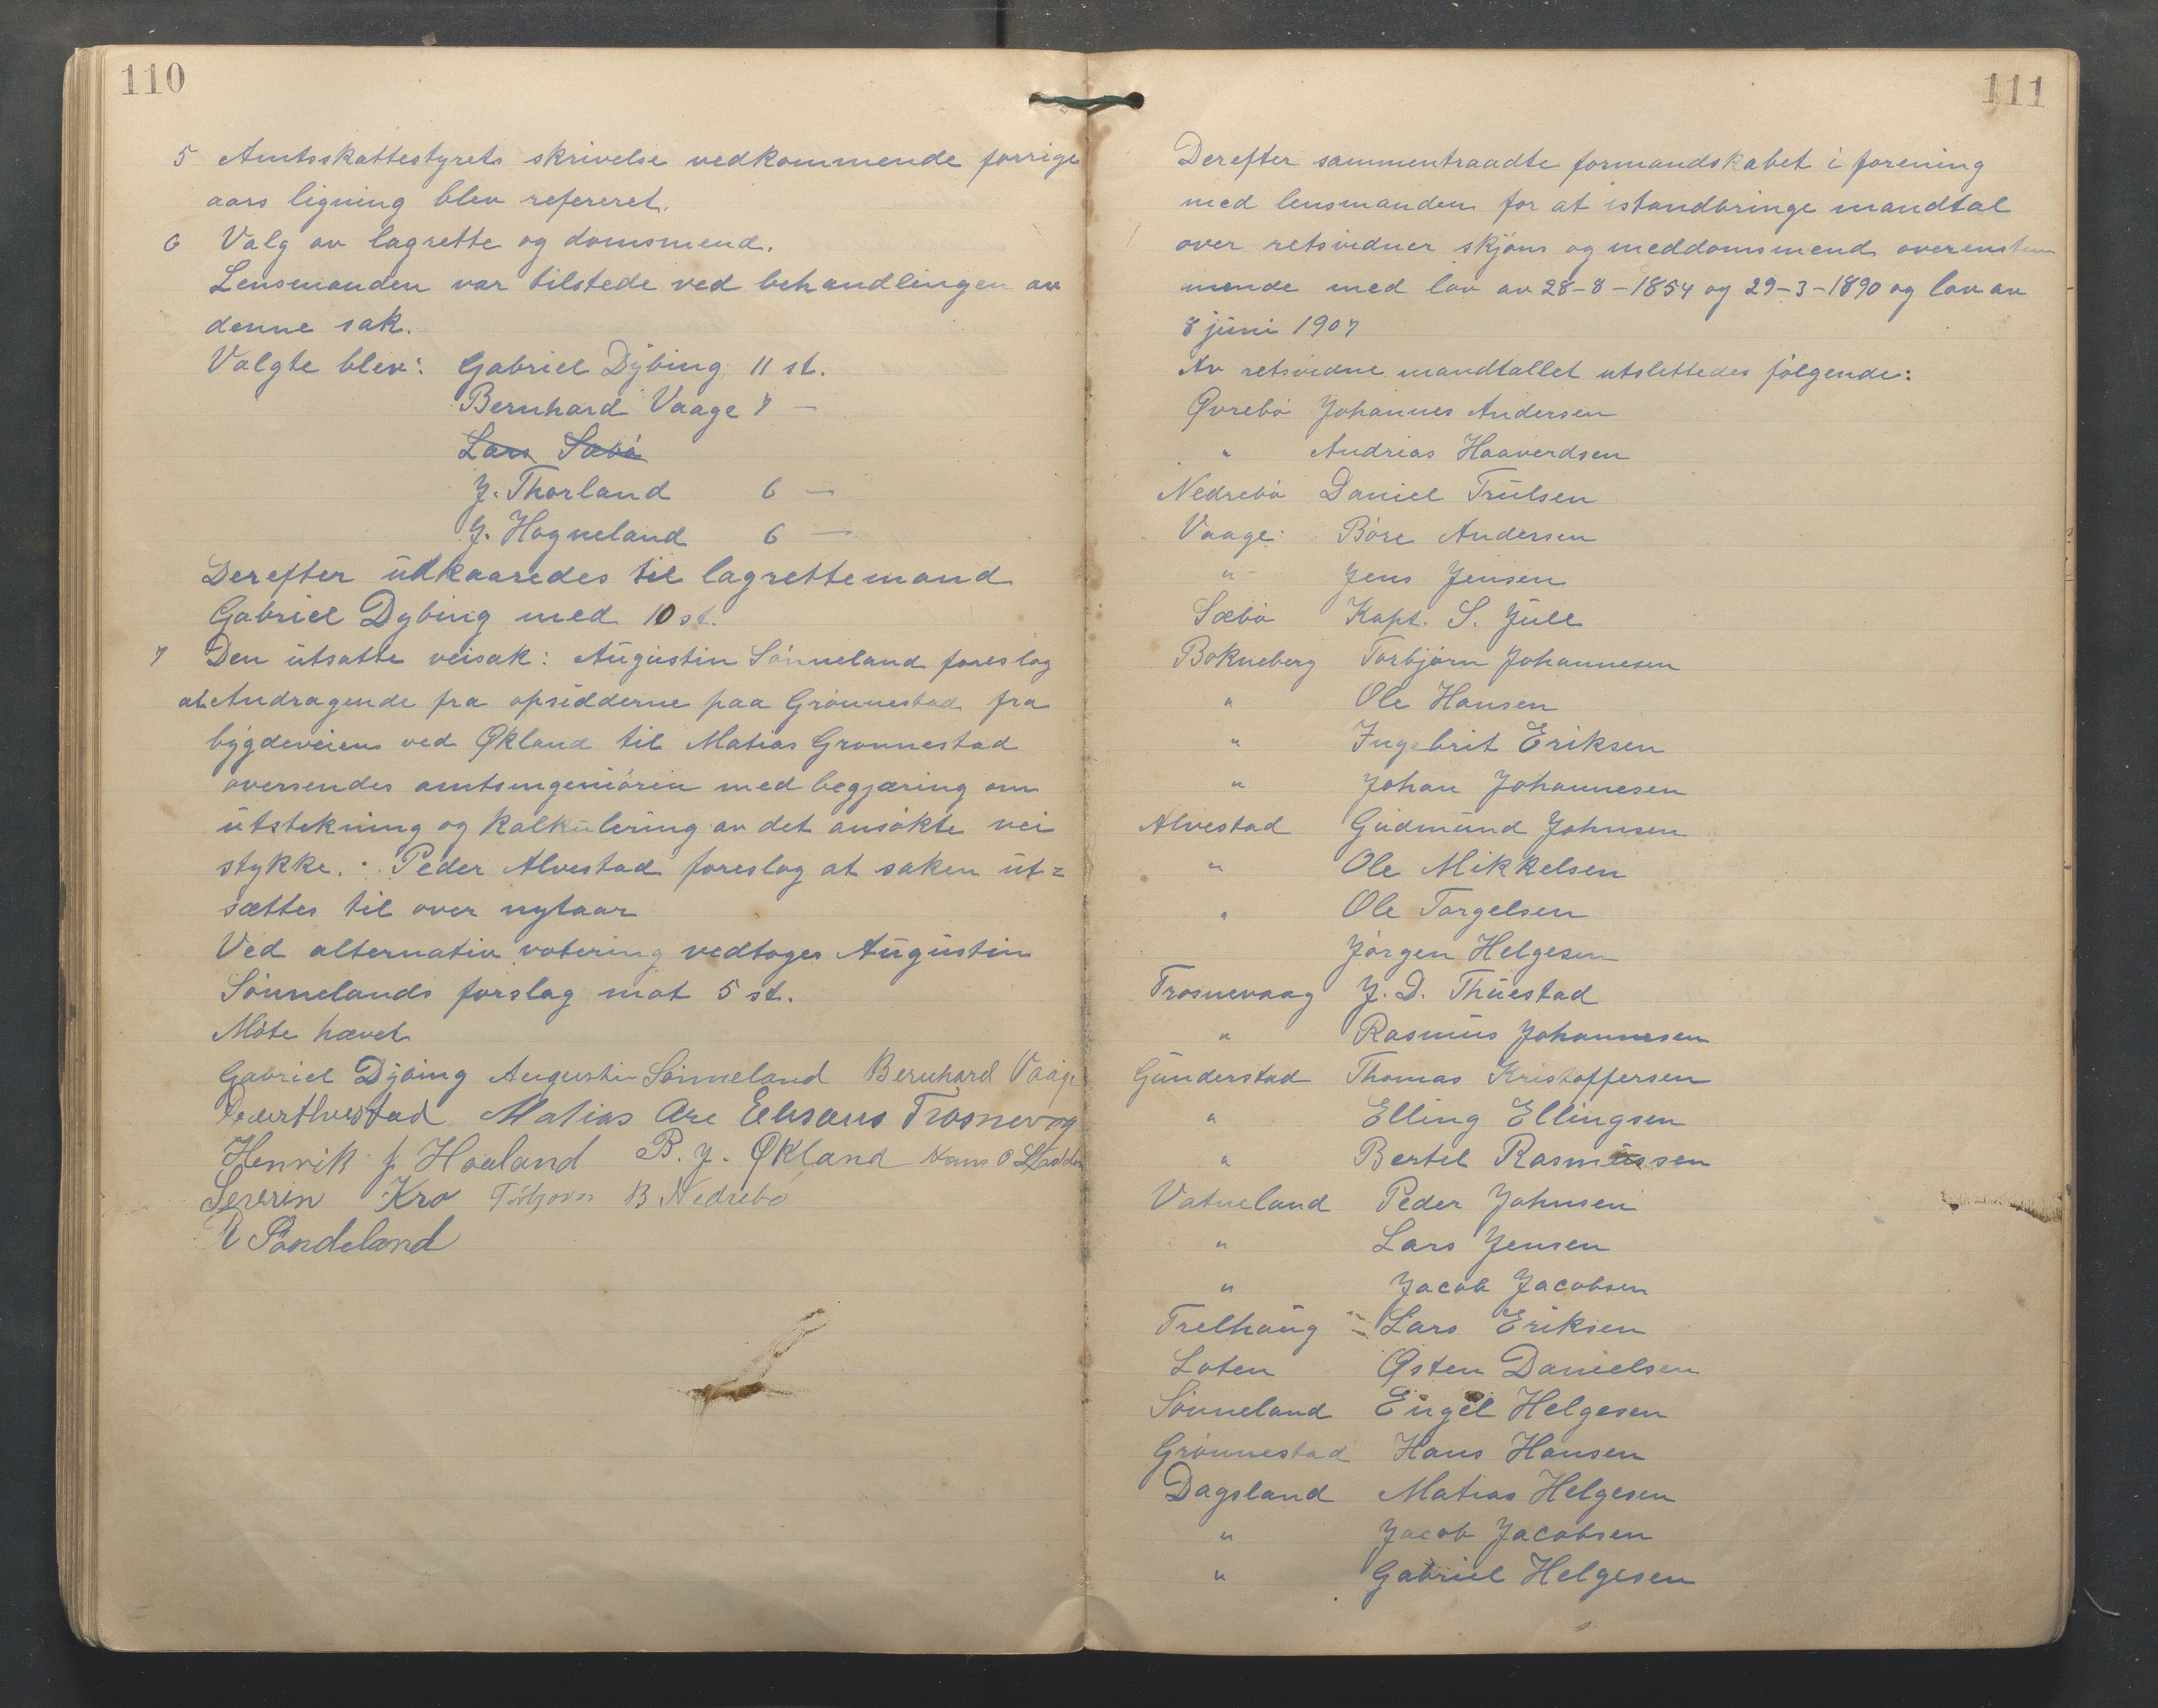 110
5 Amtsskattestyrets skrivelse vedkommende forrige
aars ligning blev refereret.
6 Valg av lagrette og domsmend.
Lensmanden var tilstede ved behandlingen av
denne sak.
Valgte blev: Gabriel Dybing 11 st.
Bernhard Vaage 7 —
Lars Sæbö
J. Thorland 6 —
J. Hogneland 6 —
Derefter udkaaredes til lagrettemand
Gabriel Dybing med 10 st.
7 Den utsatte veisak: Augustin Sönneland foreslog
at Andragende fra opsidderne paa Grönnestad fra
bygdeveien ved Økland til Matias Grönnestad
oversendes amtsingeniören med begjæring om
utstikning og kalkulering av det ansökte vei
stykke. Peder Alvestad foreslog at saken ut=
sættes til over nytaar
Ved alternativ votering vedtoges Augustin
Sönnelands forslag mot 5 st.
Möte hævet
Gabriel Dybing Augustin Sönneland Bernhard Vaage
Peder Alvestad Matias Are Trosnevog
Henrik J Haaland B. J. Økland Hans O
Severin Kro Torbjorn B Nedrebö
R Sandeland
111
Derefter sammentraadte formandskabet i forening
med lensmanden for at istandbringe mandtal
over retsvidner skjöns og meddomsmend overenstem
mende med lov av 28-8-1854 og 29-3-1890 og lov av
8 juni 1907
Av retsvidne mandtallet utslettedes fölgende:
Øvrebö Johannes Andersen
" Andrias Haaverdsen
Nedrebö Daniel Trulsen
Vaage: Böre Andersen
" Jens Jensen
Sæbö Kapt. S. Jull
Bokneberg Torbjörn Johannesen
" Ole Hansen
" Ingebrit Eriksen
" Johan Johannesen
Alvestad Gudmund Johnsen
" Ole Mikkelsen
" Ole Torgelsen
Jörgen Helgesen
Trosnevaag J. D. Thuestad
" Rasmus Johannesen
Gunderstad Thomas Kristoffersen
" Elling Ellingsen
" Bertel Rasmussen
Vatneland Peder Johnsen
" Lars Jensen
" Jacob Jacobsen
Trelhaug Lars Eriksen
Loten Østen Danielsen
Sönneland Engel Helgesen
Grönnestad Hans Hansen
Dagsland Matias Helgesen
" Jacob Jacobsen
" Gabriel Helgesen